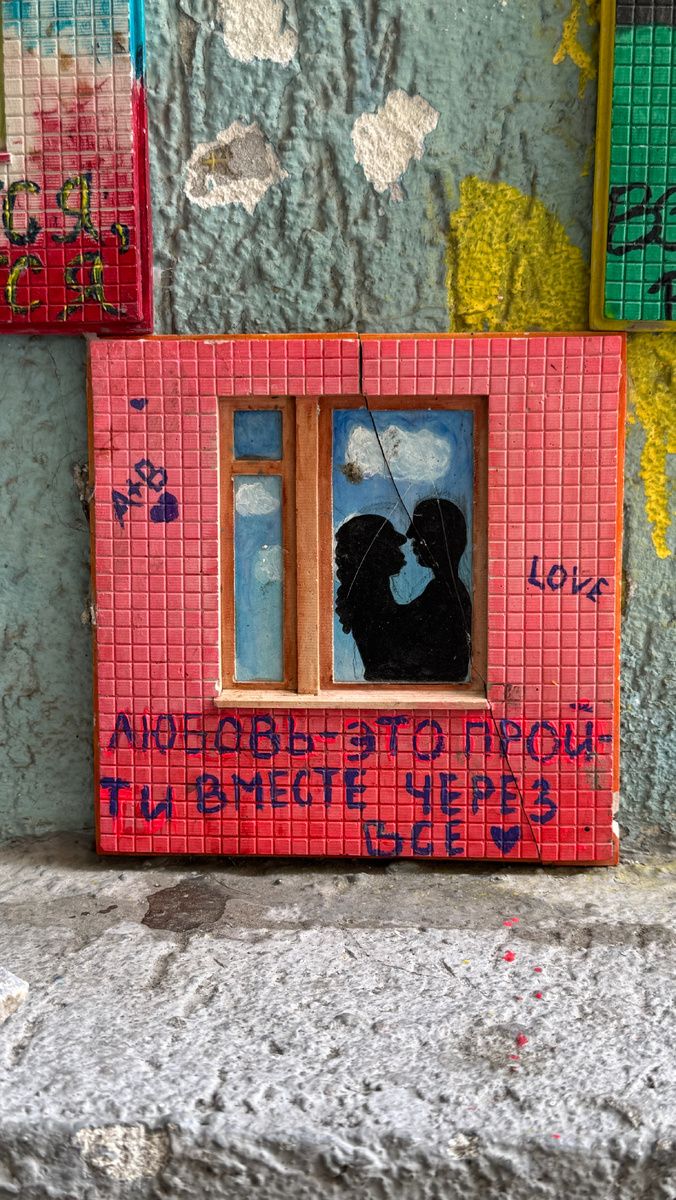 СЯ,
СЯ
А+В
LOVE
ЛЮБОВЬ-ЭТО ПРОЙ-
ТИ ВМЕСТЕ ЧЕРЕЗ
ВСЕ